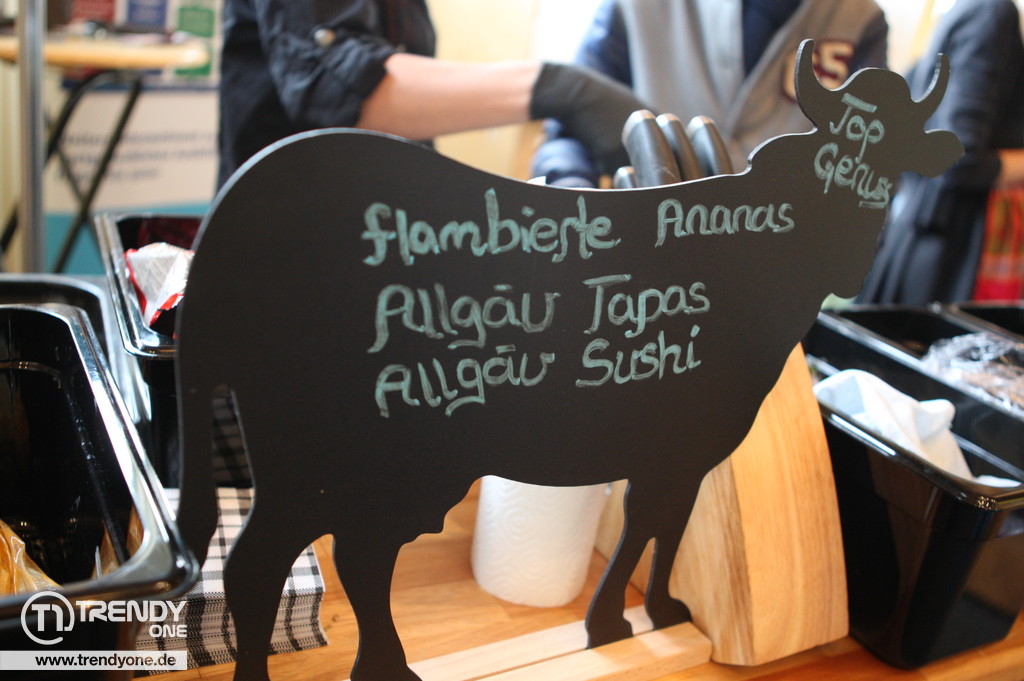 Top
Genuss
flambierte Ananas
Allgäu Tapas
Allgäu Sushi
TRENDY
ONE
www.trendyone.de